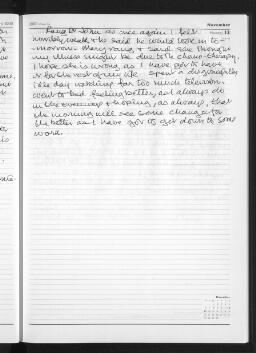 November
Rang Dr John as sick again. I felt
terribly weak & he said he would look in to-
morrow. Mary rang & said she thought
my illness might be due to the chemo-therapy.
I hope she is wrong as I have got to have
it for the rest of my life. Spent a disgraceful
like day watching far too much television.
Went to bed feeling better, as I always do
in the evenings & hoping, as always, that
the morning will see some change for
the better as I have got to get down to some
work.